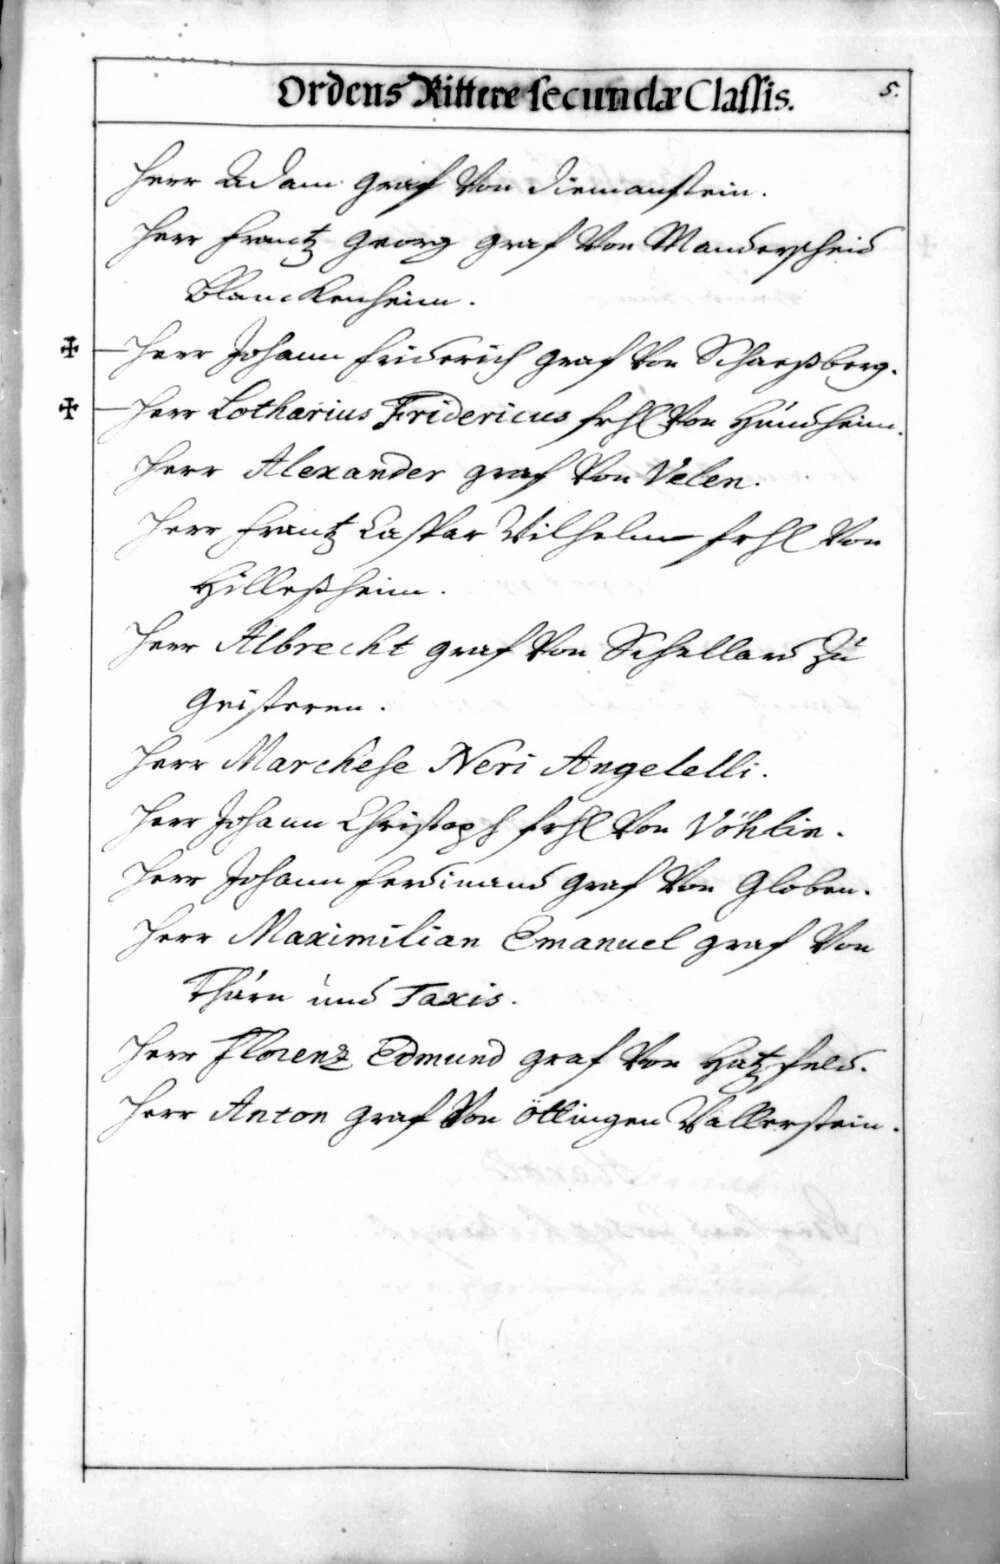 Ordens Rittere secundæ Classis.
5.
Herr Adam Graf Von Diemanstein.
Herr Frantz Georg Graf Von Manderscheid
Blanckenheim.
✠ Herr Johann Friderich Graf Von Schaeßberg.
✠ Herr Lotharius Fridericus frhl Von Hundheim.
Herr Alexander Graf Von Velen.
Herr Frantz Caspar Wilhelm frhl Von
Hilleßheim.
Herr Albrecht Graf Von Schellard Zu
Geisteren.
Herr Marchese Neri Angelelli.
Herr Johann Christoph frhl Von Vöhlin.
Herr Johann Ferdinand Graf Von Globen.
Herr Maximilian Emanuel Graf Von
Thurn und Taxis.
Herr Florenz Edmund Graf Von Hatzfeld.
Herr Anton Graf Von Öttingen Wallerstein.